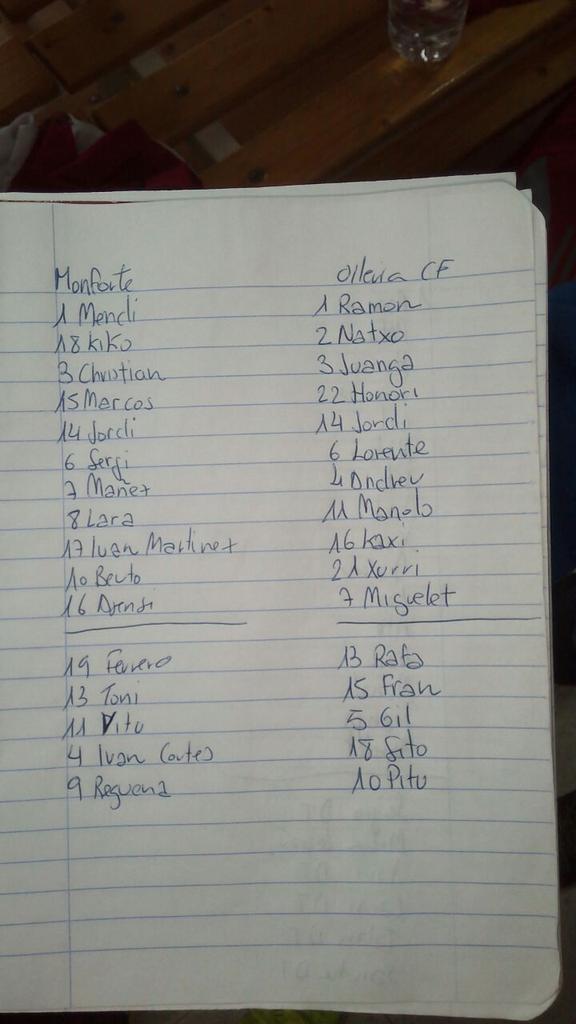 Monforte
1 Mendi
18 Kiko
3 Christian
15 Marcos
14 Jordi
6 Sergi
7 Mañez
8 Lara
17 Ivan Martinez
10 Berto
16
19 Ferrero
13 Toni
11 Vitu
4 Ivan Cortes
9 Requena
Olleria CF
1 Ramon
2 Natxo
3 Juanga
22 Honori
14 Jordi
6 Lorente
4 Andreu
11 Manolo
16 Kaxi
21 Xurri
7 Miguelet
13 Rafa
15 Fran
5 Gil
18 Sito
10 Pitu